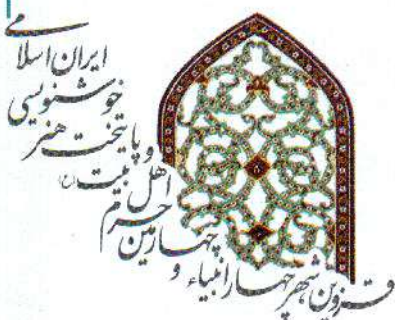 قزوین شهر چهار انبیاء و
چهارمین حرم
اهل بیت (ع)
و پایتخت هنر
خوشنویسی
ایران اسلامی